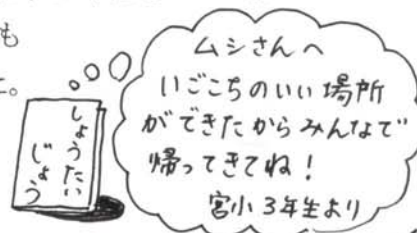 も
。
しょうたい
じょう
ムシさんへ
いごこちのいい場所
ができたからみんなで
帰ってきてね！
宮小3年生より